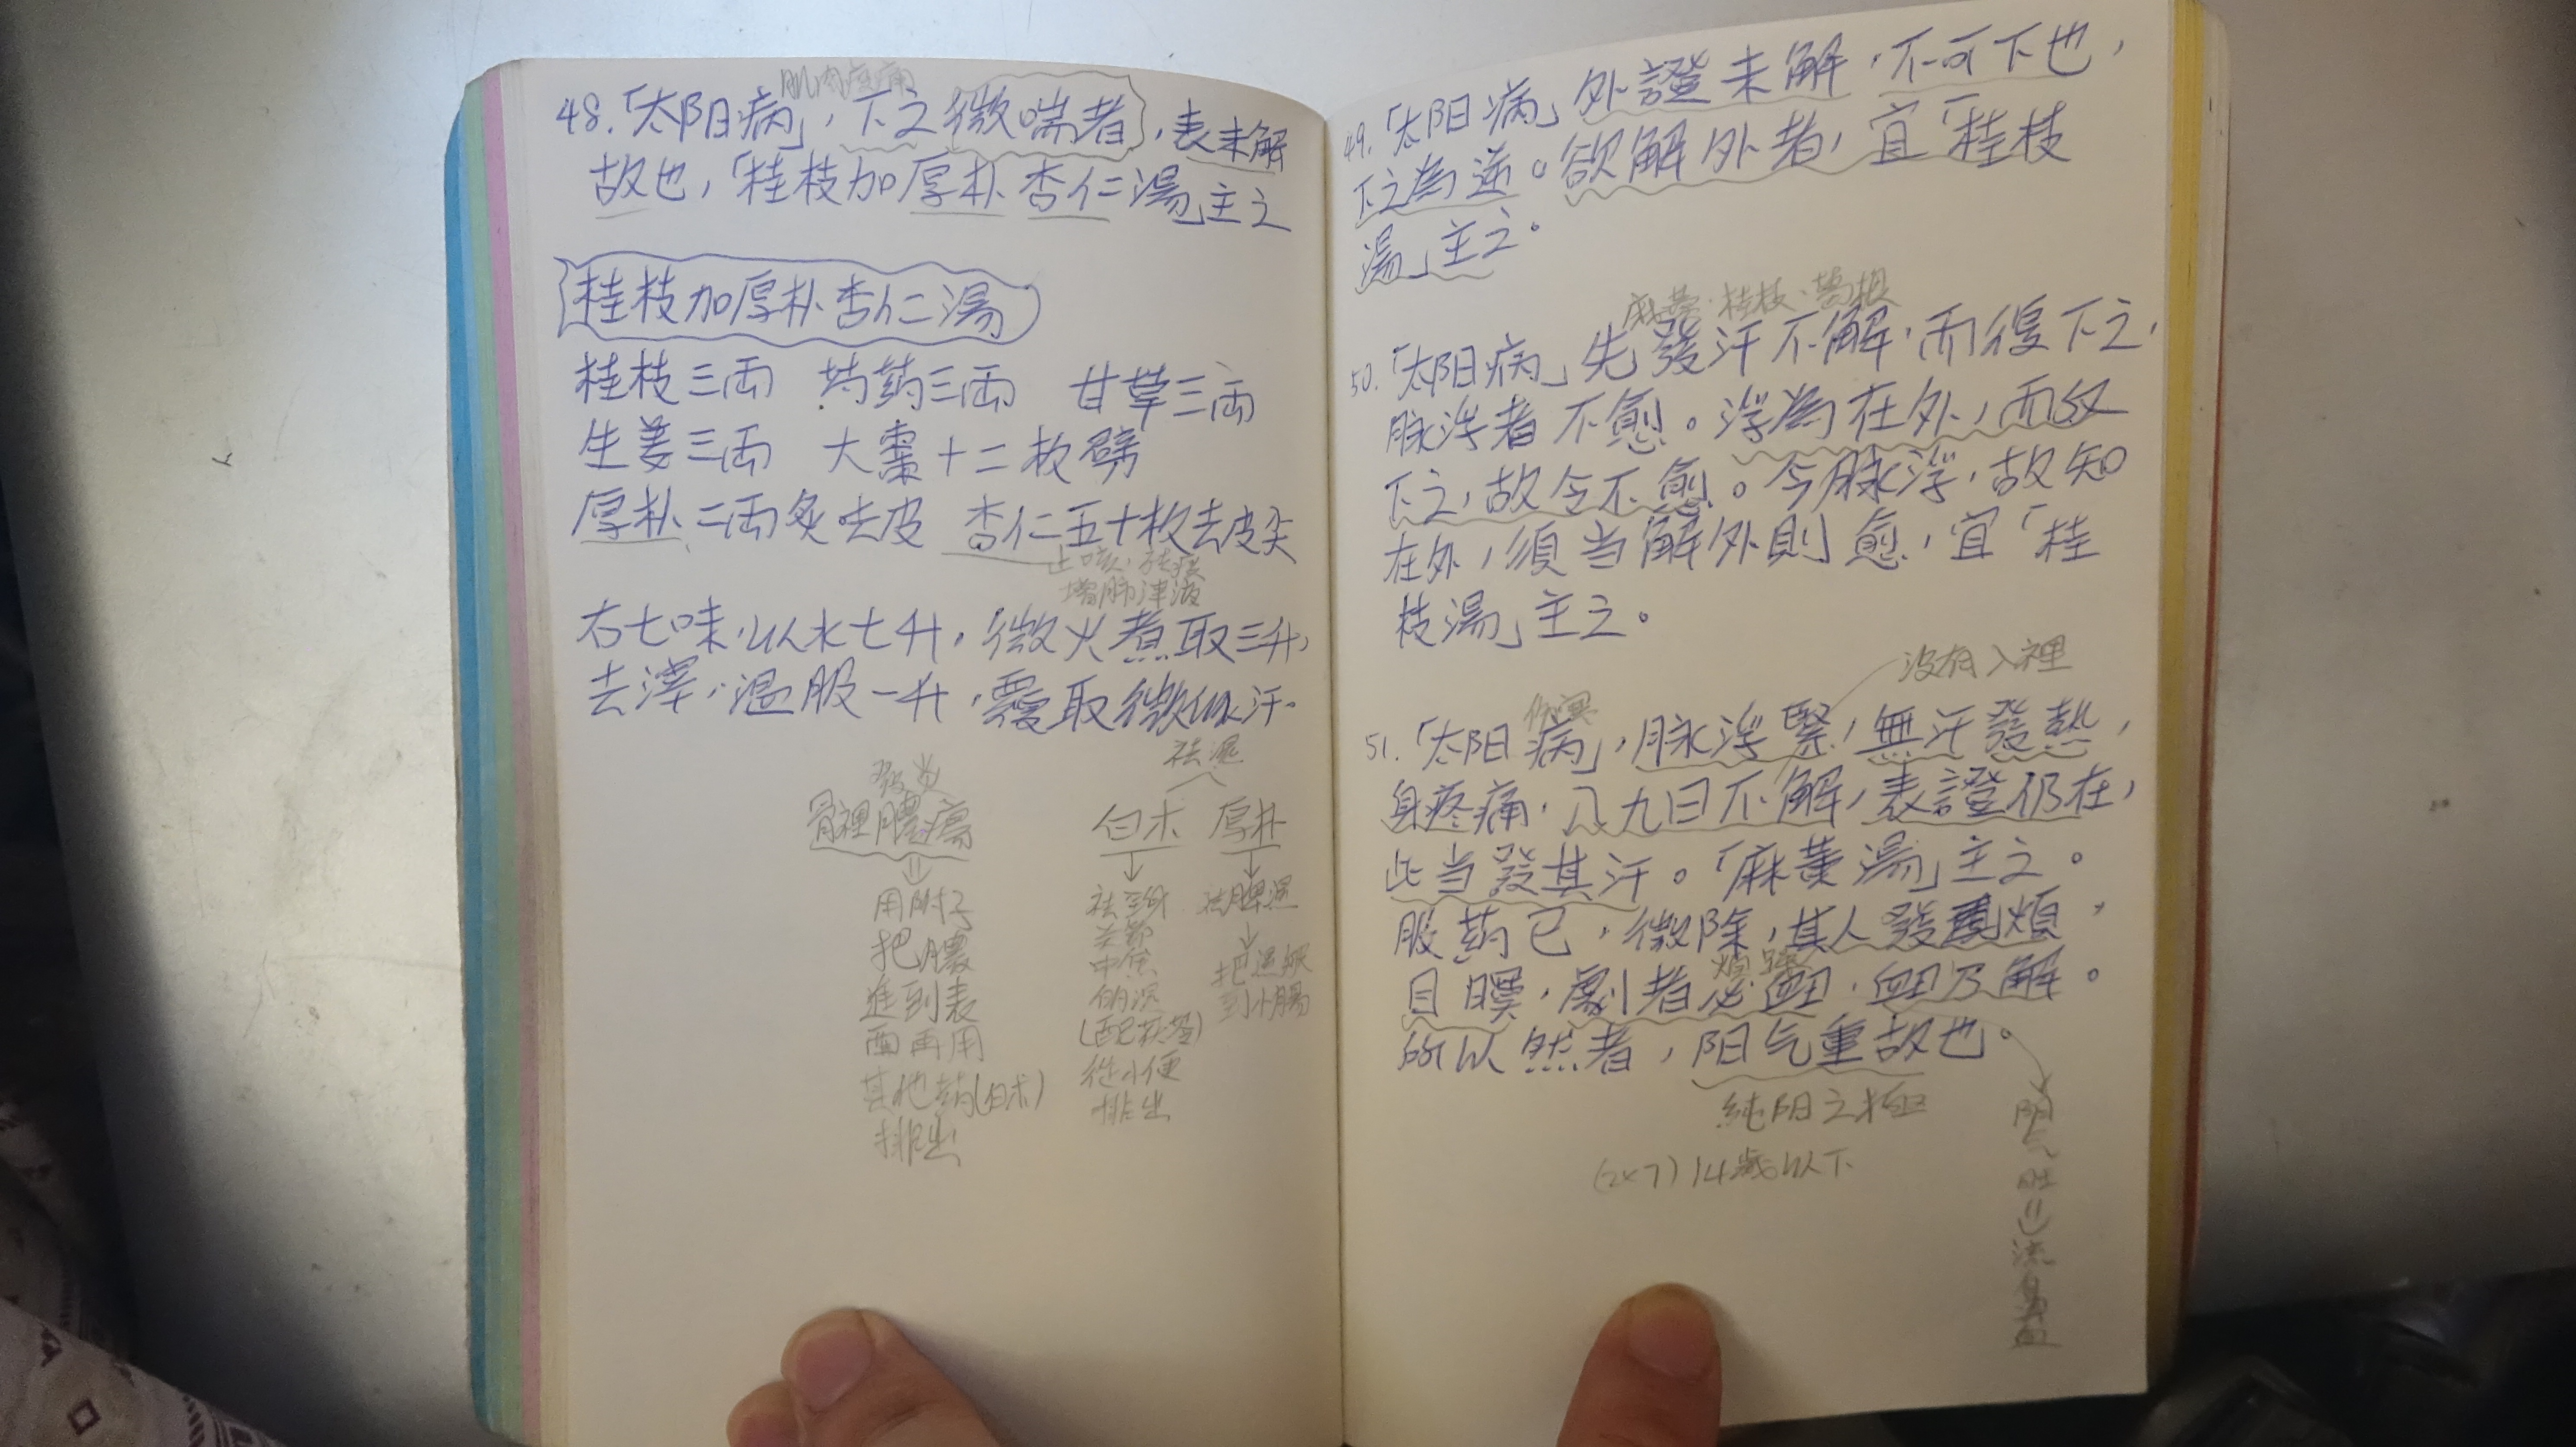 肌肉痠痛
48.「太阳病」，下之微喘者，表未解
故也，「桂枝加厚朴杏仁湯」主之
桂枝加厚朴杏仁湯
桂枝三両 芍药三両 甘草三両
生姜三両 大棗十二枚劈
厚朴二両炙去皮 杏仁五十枚去皮尖
止咳、祛痰
增肺津液
右七味，以水七升，微火煮取三升，
去滓，温服一升，覆取微似汗。
祛濕
骨裡膿瘍
用附子
把膿
進到表
面再用
其他药(白朮)
排出
白朮
関節
(配茯苓)
從小便
排出
厚朴
祛脾濕
↓
把濕
到小腸
49.「太阳病」外證未解，不可下也，
下之為逆。欲解外者，宜「桂枝
湯」主之。
麻黄、桂枝、葛根
50.「太阳病」先發汗不解，而復下之，
脉浮者不愈。浮為在外，而反
下之，故令不愈。今脉浮，故知
在外，須当解外則愈，宜「桂
枝湯」主之。
没有入裡
傷寒
51.「太阳病」，脉浮緊，無汗發熱，
身疼痛，八九日不解，表證仍在，
此当發其汗。「麻黄湯」主之。
服药已，微除，其人發煩，
目瞑，劇者必衄，衄乃解。
所以然者，阳气重故也。
純阳之体
(2x7)14歲以下
阳气旺
流鼻血